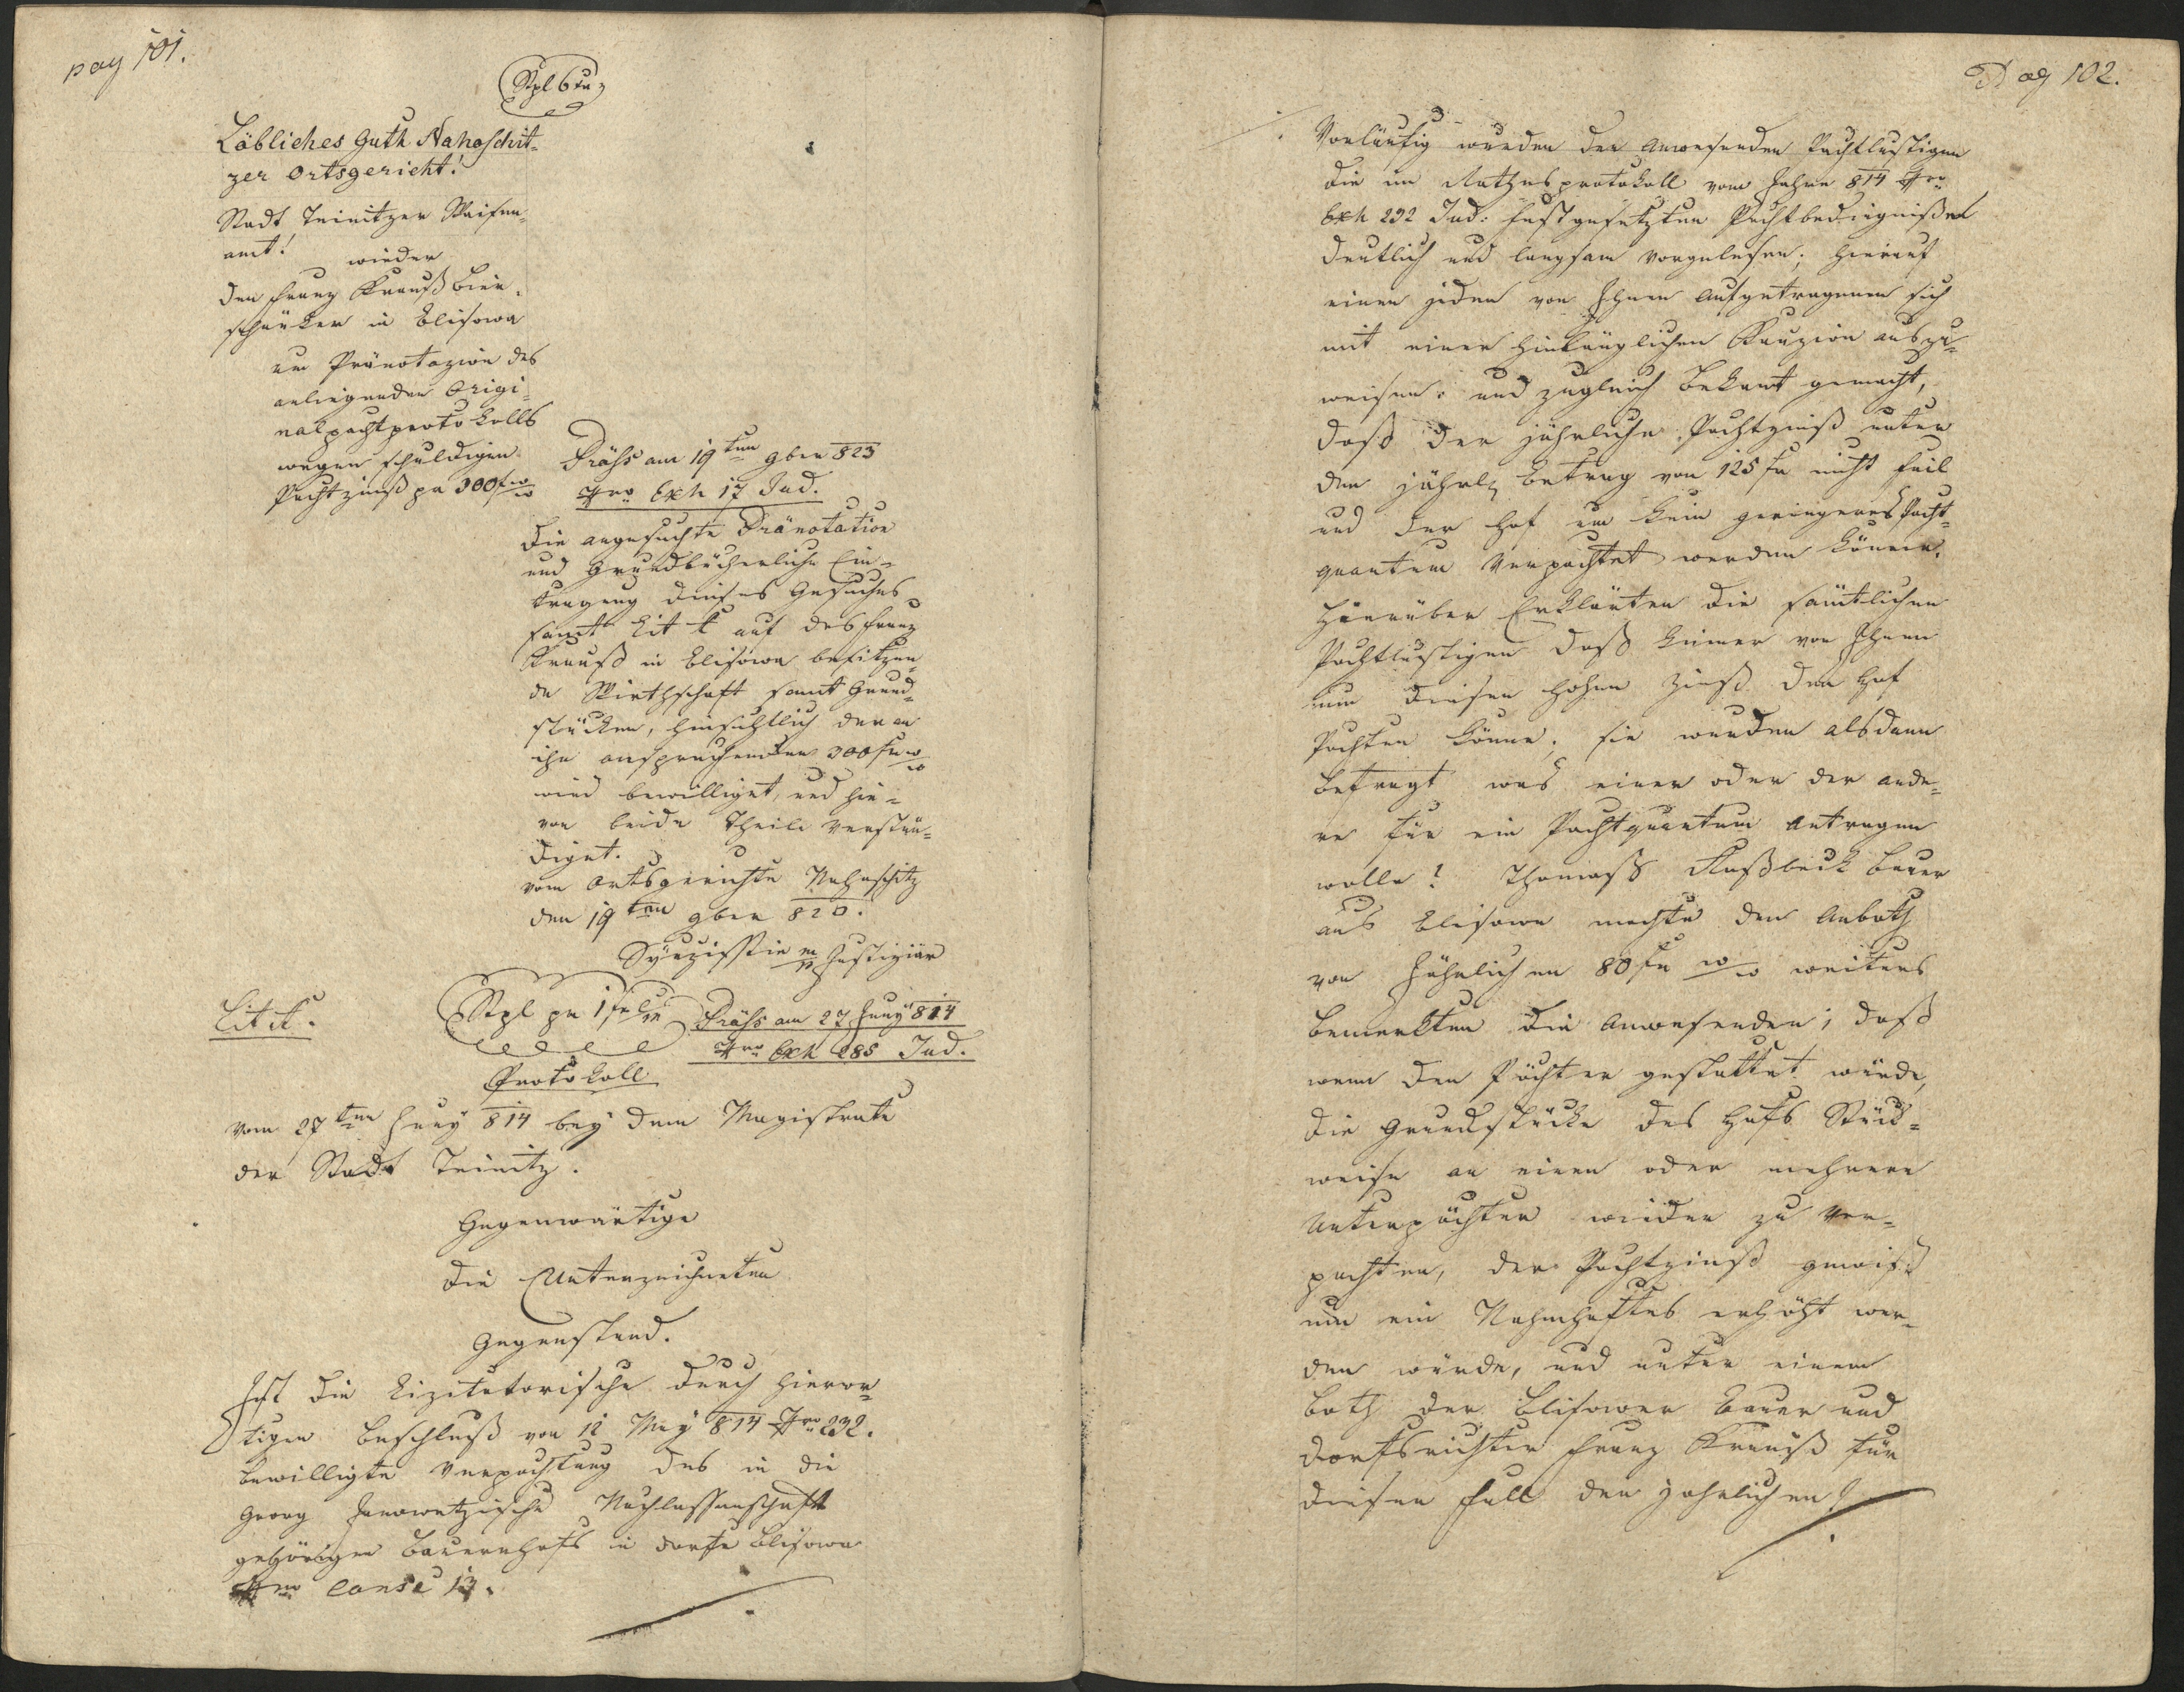 pag 101.
Stpl 6 kr
Löbliches Guth Nahoschit-
zer Ortsgericht!
Stadt Teinitzer Waisen-
amt!
wieder
den Franz Krauß Bier-
schänker in Blisowa
um Pränotazion des
anliegenden Origi-
nalpachtprotokolls
wegen schuldigen
Pachtzinß pr 300 f w/w
Präss am 19ten 9ber 823
Nro Exh 17 Jud.
Die angesuchte Pränotation
und Grundbücherliche Ein-
tragung dieses Gesuches
samt Lit A auf des Franz
Krauß in Blisowa besitzen-
de Wirthschaft samt Grund-
stücken, hinsichtlich der an
ihn ansprechenden 300 fr w/w
wird bewilliget, und hie-
von beide Theile verstän-
diget.
vom Ortsgerichte Nahoschitz
den 19ten 9ber 820.
mp Justiziär
Lit A.
Stpl pr 1 fr
Präss am 27 Juny 814
Nro Exh 285 Jud.
Protokoll
vom 27ten Juny 814 bey dem Magistrate
der Stadt Teinitz.
Gegenwärtige
die Unterzeichneten
Gegenstand.
Ist die Lizitatorische durch hieror-
tigen Beschluß von 12 May 814 Nro 232.
bewilligte Verpachtung des in die
Georg Nachlassenschaft
gehörigen Bauernhofs in Dorfe Blisowa
Nro Conse 13.
Pag 102.
Vorläufig wurden den Anwesenden Pachtlustigen
die im Rathsprotokoll vom Jahre 814 Nro
Exh 232 Jud: festgesetzten Pachtbedingnißen
deutlich und langsam vorgelesen; hierauf
einen jeden von Ihnen Aufgetragenen sich
mit einer hinlänglichen Kauzion auszu-
weisen: und zugleich bekannt gemacht,
daß der jährliche Pachtzinß unter
den jährl Betrag von 125 fr nicht feil
und der Hof um kein geringeres Pacht-
quantum Verpachtet werden könne.
Hierüber Erklärten die sämtlichen
Pachtlustigen daß keiner von Ihnen
um diesen hohen Zinß den Hof
Pachten könne; sie wurden alsdann
befragt was einer oder der ande-
re für ein Pachtquantum Antragen
wolle? Thomass Bauer
aus Blisowa machte den Anboth
von Jährlichen 80 fr w/w weiters
bemerkten die Anwesenden; daß
wenn den Pächter gestattet würde,
die Grundstücke des Hofs Stück-
weise an einen oder mehrere
Unterpächter wieder zu ver-
pachten, der Pachtzinß gewiß
um ein Nahmhaftes erhöht wer-
den würde, und unter einem
both der Blisower Bauer und
Dorfsrichter Franz Krauß für
diesen Fall den jahrlichen